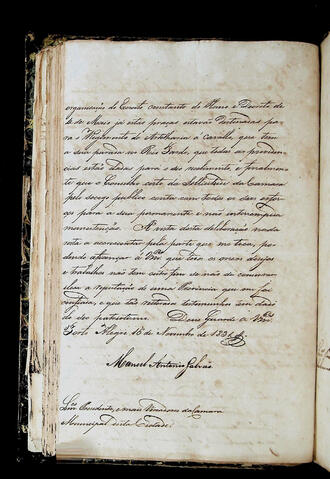 organisação do Exercito constante do Plano e Decreto de
de Maio já estas praças estavão destinadas pa
ra Regimento de Artilharia a Cavallo, que tem
a sua parada no Rio Grande, que todas as providen
cias estão dadas para o seo recebimento, e finalmen
te que o Conselho certo da Sollicitude da Camara
pelo socego publico conta com todos os seos esfor
ços para a sua permanente e não interrompida
manutenção. Á vista desta deliberação nada
resta a accrescentar pela parte que me toca, po
dendo afiançar a que são os meus desejos
e trabalhos não tem outro fim se não de
a reputação de uma Provincia que em
confiada, e que tão notorios testemunhos tem dado
do seo patriotismo. Deus Guarde a
Porto Alegre 15 de Novembro de 1831
Manoel Antonio Galvão
Presidente, e mais Vereadores da Camara
Municipal desta Cidade.